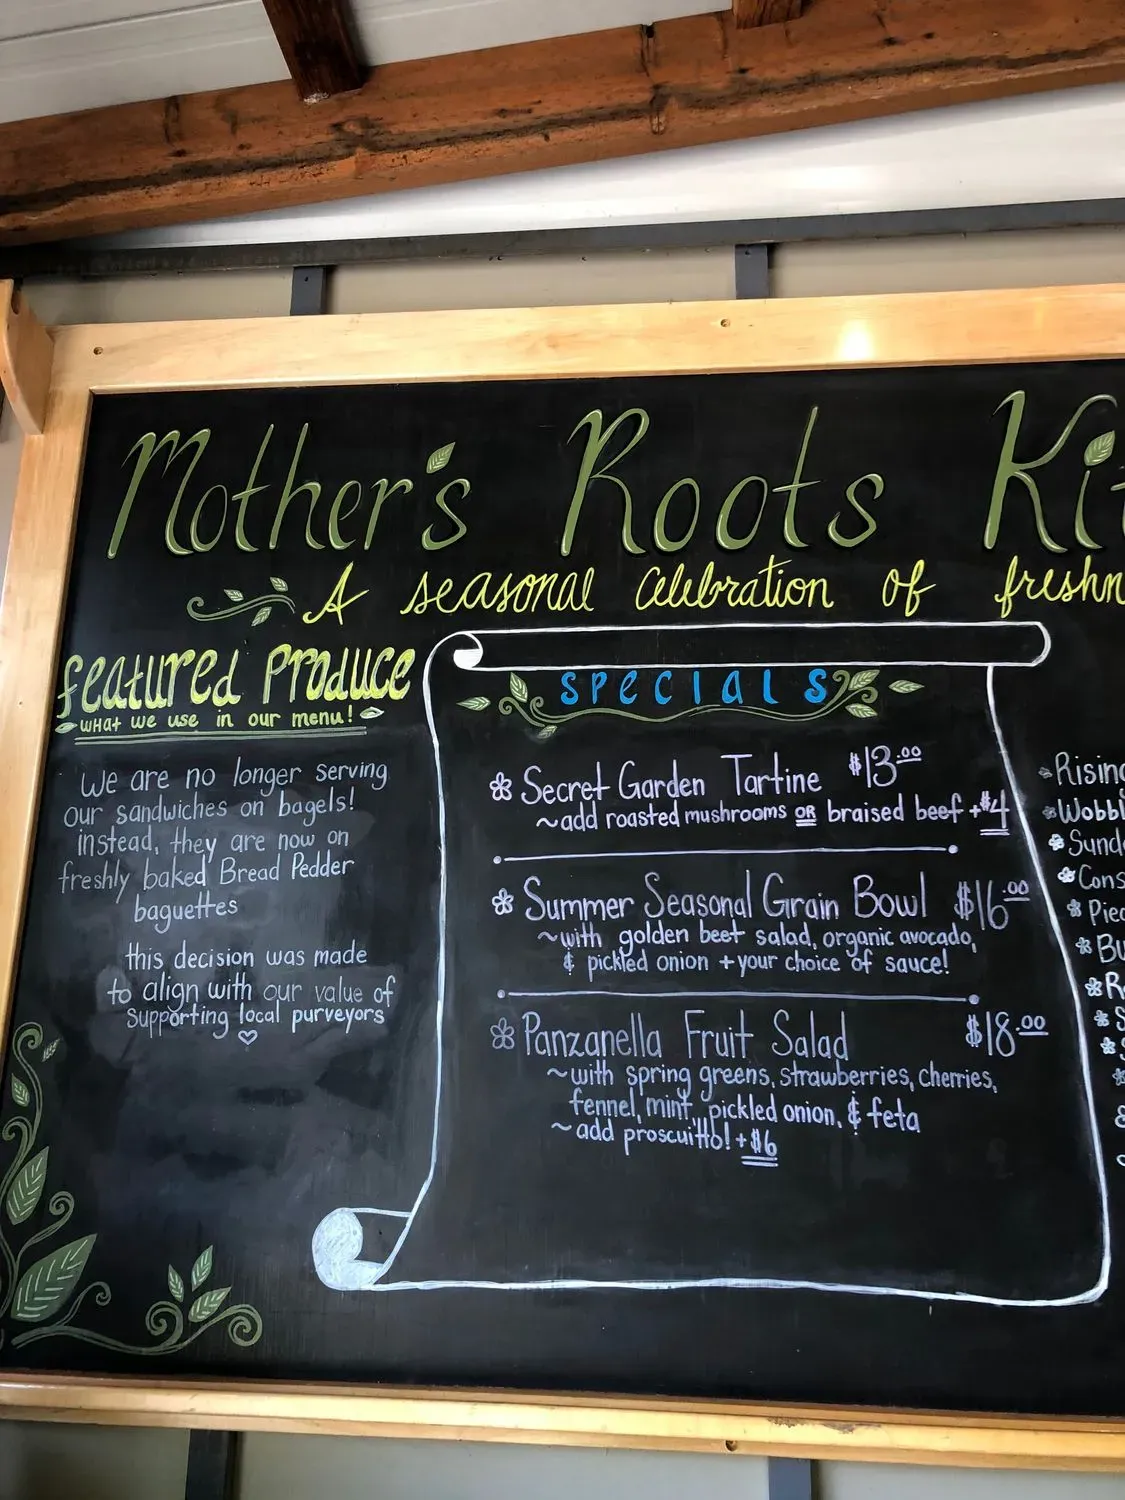 Mother's Roots
A seasonal celebration of
featured Produce
what we use in our menu!
We are no longer serving
our sandwiches on bagels!
instead, they are now on
freshly baked Bread Pedder
baguettes
this decision was made
to align with our value of
supporting local purveyors
SPECIALS
Secret Garden Tartine $13.00
~add roasted mushrooms OR braised beef +$4
Summer Seasonal Grain Bowl $16.00
~with golden beet salad, organic avocado,
& pickled onion + your choice of sauce!
Panzanella Fruit Salad $18.00
~with spring greens, strawberries, cherries,
fennel, mint, pickled onion, & feta
~add proscuitto! +$6
Rising